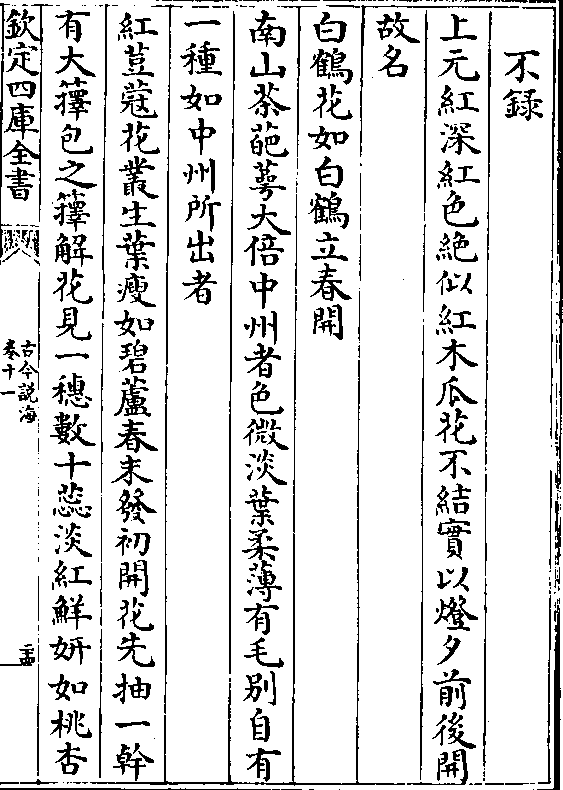 不録
上元紅深紅色絶似紅木瓜花不結實以燈夕前後開
故名
白鶴花如白鶴立春開
南山茶葩萼大倍中州者色微淡葉柔薄有毛别自有
一種如中州所出者
紅荳蔻花叢生葉瘦如碧蘆春末發初開花先抽一幹
有大籜包之籜解花見一穗數十蕊淡紅鮮妍如桃杏
欽定四庫全書
古今説海
卷十一
二十四